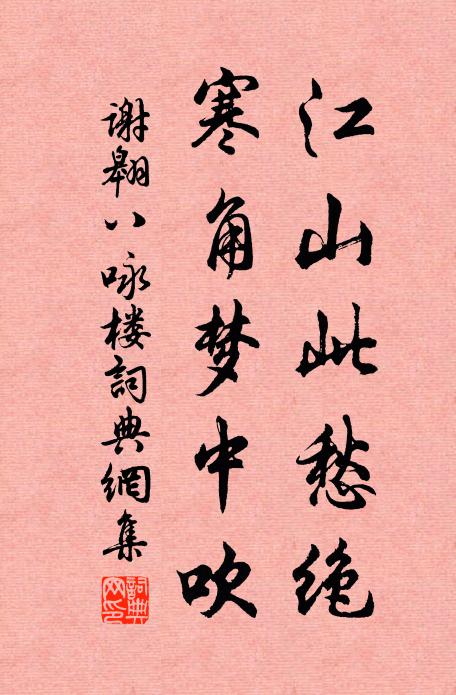 江山此愁绝
寒角梦中吹
谢翱八咏楼詞典網集
詞典网印